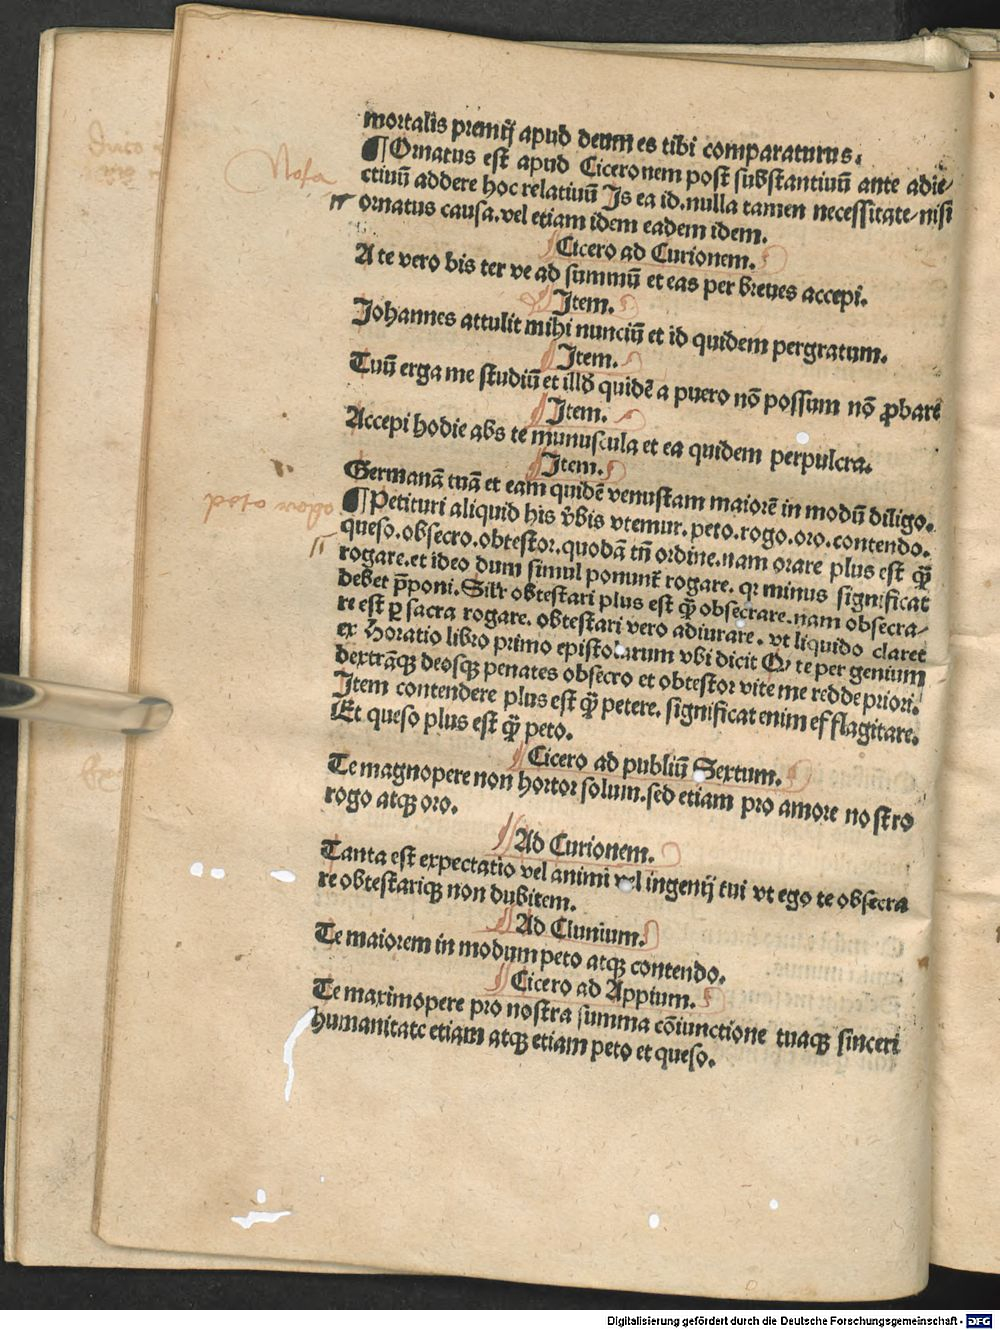 mortalis premij apud deum es tibi comparaturus.
¶Ornatus est apud Ciceronem post substantiuū ante adie/
Nota
ctiuū addere hoc relatiuū Is ea id.nulla tamen necessitate/nisi
ornatus causa.vel etiam idem eadem idem.
Cicero ad Curionem.
A te vero bis ter ve ad summū et eas per breues accepi.
Item.
Johannes attulit mihi nunciū et id quidem pergratum.
Item.
Tuū erga me studiū et illđ quidē a puero nō possum nō ꝓbare
Item.
Accepi hodie abs te munuscula et ea quidem perpulcra.
Item.
Germanā tuā et eam quidē venustam maiorē in modū diligo.
¶Petituri aliquid his v̄bis vtemur.peto.rogo.oro.contendo.
queso.obsecro.obtestor.quodā tn̄ ordine.nam orare plus est q̄ꝫ
rogare.et ideo dum simul ponunt̄ rogare.qr minus significat
debet p̄poni.Silr obtestari plus est q̄ꝫ obsecrare.nam obsecra/
re est ꝑ sacra rogare. obtestari vero adiurare. vt liquido claret
ex Horatio libro primo epistolarum vbi dicit Qr te per genium
dextrāqꝫ deosqꝫ penates obsecro et obtestor vite me redde priori.
Item contendere plus est q̄ꝫ petere. significat enim efflagitare.
Et queso plus est q̄ꝫ peto.
Cicero ad publiū Sextum.
Te magnopere non hortor solum.sed etiam pro amore nostro
rogo atqꝫ oro.
Ad Curionem.
Tanta est expectatio vel animi vel ingenij tui vt ego te obsecra
re obtestariqꝫ non dubitem.
Ad Clunium.
Te maiorem in modum peto atqꝫ contendo.
Cicero ad Appium.
Te maximopere pro nostra summa cōiunctione tuaqꝫ sinceri
humanitate etiam atqꝫ etiam peto et queso.
Digitalisierung gefördert durch die Deutsche Forschungsgemeinschaft - DFG